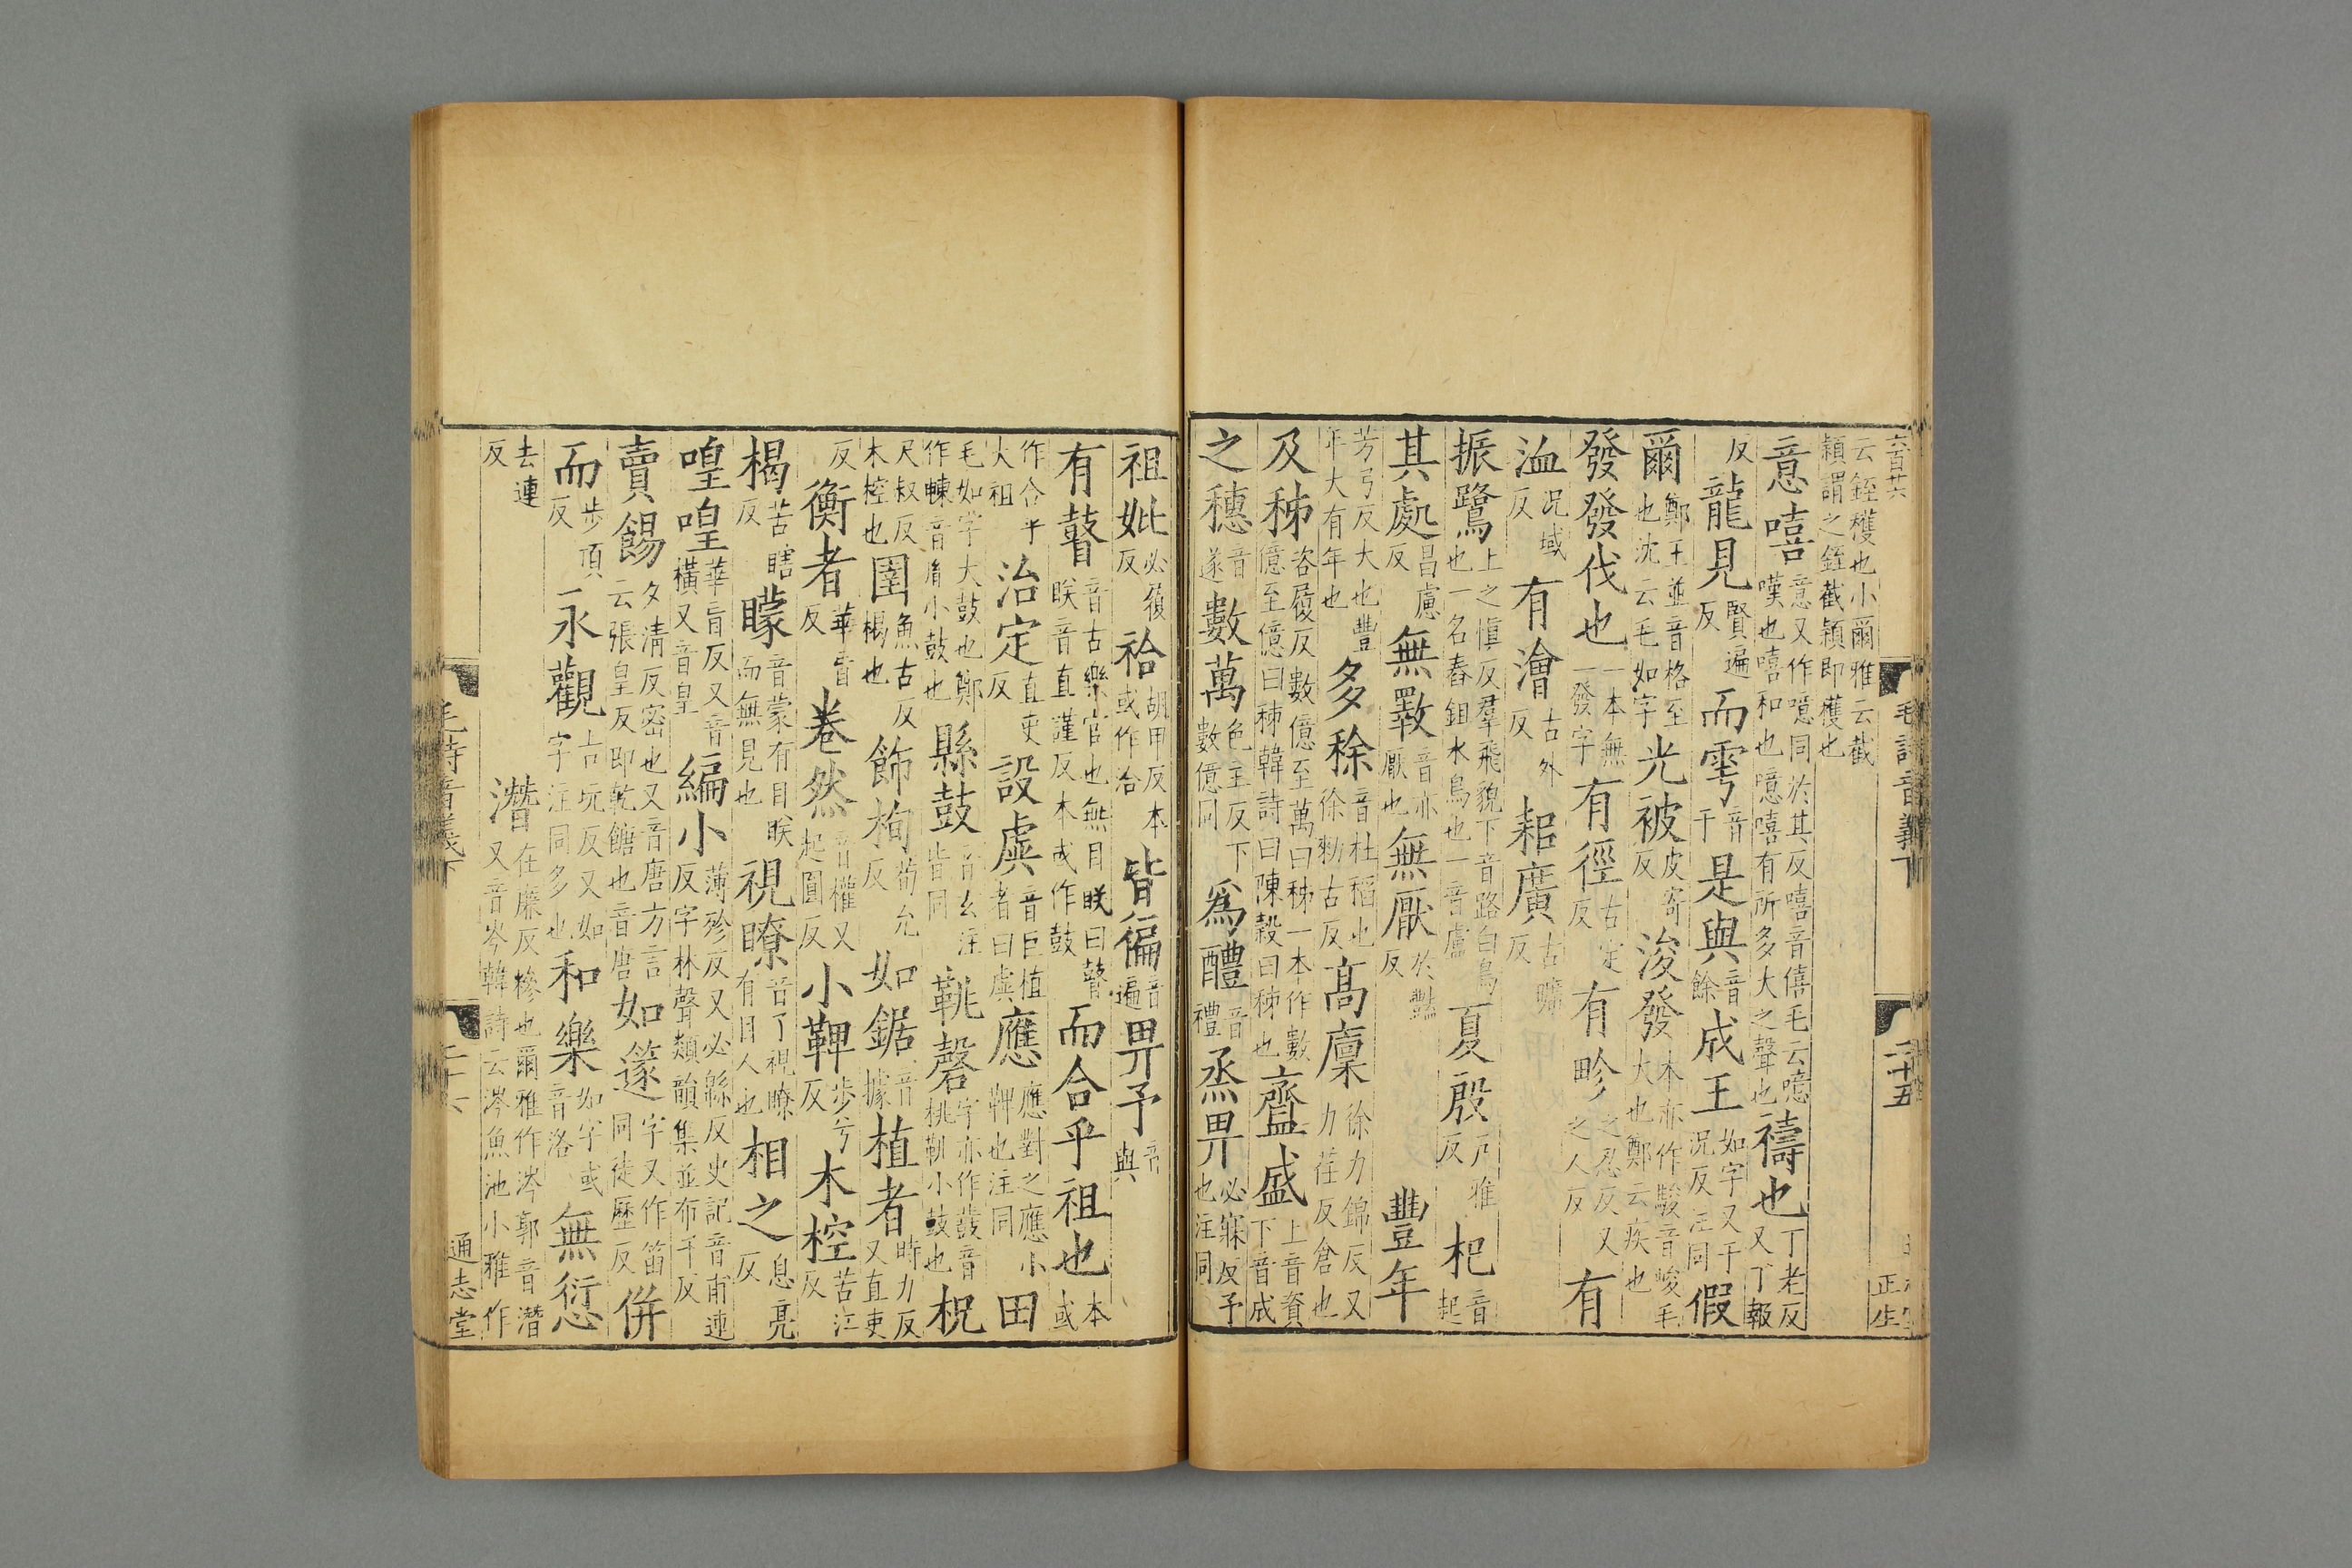 云銍穫也小爾雅云截穎謂之銍截穎即穫也
意嘻意又作噫同於其反嘻音僖毛云噫嘆也嘻和也噫嘻有所多大之聲也禱也丁老反又丁報
反龍見賢遍反而雩音于是與音餘成王如字又于況反注同假
爾鄭王並音格至也沈云毛如字光被皮寄反浚發本亦作駿音峻毛大也鄭云疾也
發發伐也一本無一發字有徑古定反有畛之忍反又之人反有
洫況域反有澮古外反耜廣古曠反
振鷺上之愼反羣飛貌下音路白鳥也一名舂鉏水鳥也一音盧夏殷戶雅反杞音起
其處昌慮反無斁音亦厭也無厭於豔反豐年
芳弓反大也豐年大有年也多稌音杜稻也徐勑古反高廩徐力錦反又力荏反倉也
及秭咨履反數億至萬曰秭一本作數億至億曰秭韓詩曰陳穀曰秭也齍盛上音資下音成
之穗音遂數萬色主反下數億同爲醴音禮烝畀必寐反予也注同
毛詩音義下
二十五
正生
祖妣必履反祫胡甲反本或作洽皆徧音遍畀予音與
有瞽音古樂官也無目眹曰瞽眹音直謹反本或作鼓而合乎祖也本或
作合乎大祖治定直吏反設虡音巨植者曰虡應應對之應小鞞也注同田
毛如字大鼓也鄭作朄音胤小鼓也縣鼓音玄注皆同鞉磬字亦作鼗音桃鞉小鼓也柷
尺叔反木椌也圉魚古反楬也飾栒荀允反如鋸音據植者時力反又直吏
反衡者華盲反卷然音權又起圓反小鞞步兮反木椌苦江反
楬苦瞎反矇音蒙有目眹而無見也視瞭音了視瞭有目人也相之息亮反
喤喤華盲反又音橫又音皇編小薄殄反又必緜反史記音甫連反字林聲類韻集並布千反
賣餳夕清反密也又音唐方言云張皇反即乾餹也音唐如篴字又作笛同徒歷反併
步頂反而永觀古玩反又如字注同多也和樂如字或音洛無愆
去連反潛在廉反椮也爾雅作涔郭音潛又音岑韓詩云涔魚池小雅作
毛詩音義下
通志堂